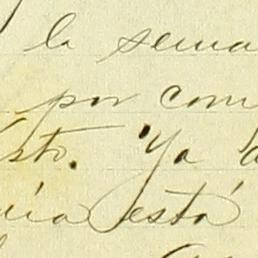 la sema
por com
sto. Ya a
ia está